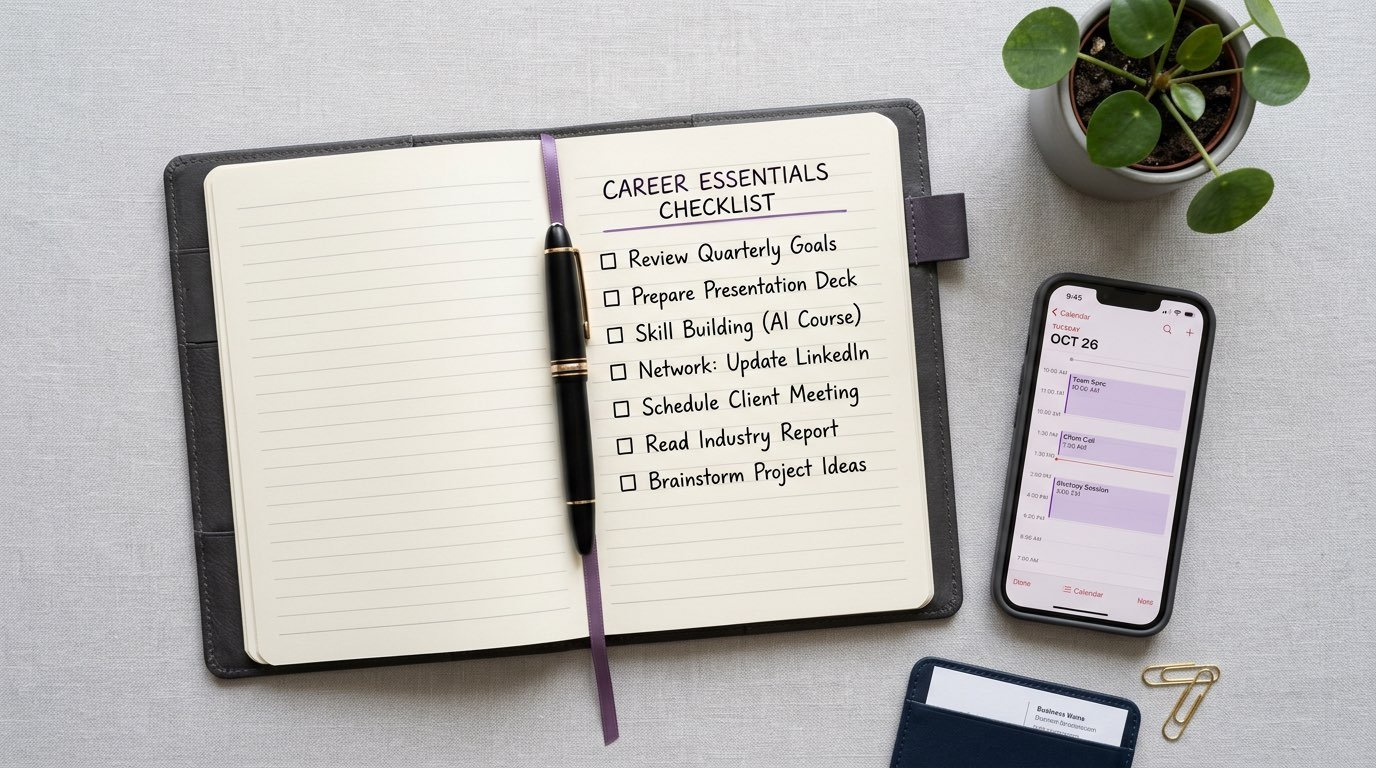 CAREER ESSENTIALS
CHECKLIST
Review Quarterly Goals
Prepare Presentation Deck
Skill Building (AI Course)
Network: Update LinkedIn
Schedule Client Meeting
Read Industry Report
Brainstorm Project Ideas
9:45
Calendar
TUESDAY
OCT 26
10:00 AM
Team Sprc
10:00 AM
11:00
10:00
1:30 PM
Call
7:00 AM
1:30
2:00
Session
4:00 PM
6:00 PM
7:00 AM
Done
Calendar
Business Wame